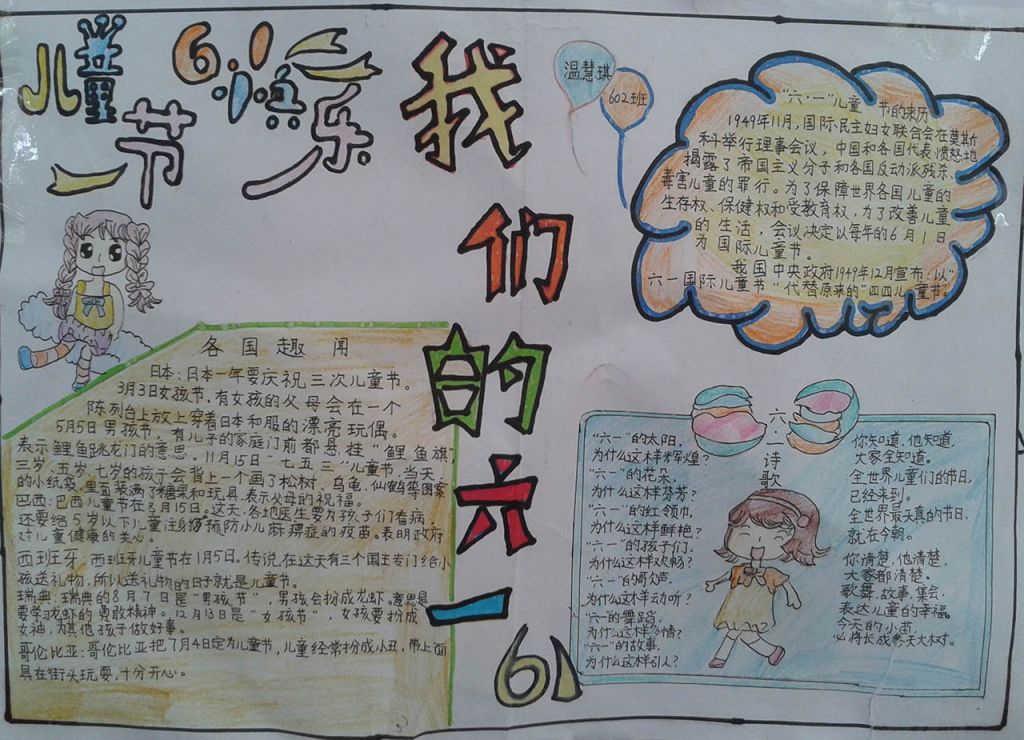 儿童节
6.1快乐
我们的六一
温慧琪
602班
"六·一"儿童节的来历
1949年11月,国际民主妇女联合会在莫斯
科举行理事会议,中国和各国代表愤怒地
揭露了帝国主义分子和各国反动派残杀、
毒害儿童的罪行。为了保障世界各国儿童的
生存权、保健权和受教育权,为了改善儿童
的生活,会议决定以每年的6月1日
为国际儿童节。
我国中央政府1949年12月宣布:以"
六一国际儿童节"代替原来的"四四儿童节"
各国趣闻
日本:日本一年要庆祝三次儿童节。
3月3日女孩节,有女孩的父母会在一个
陈列台上放上穿着日本和服的漂亮玩偶。
5月5日男孩节,有儿子的家庭门前都悬挂"鲤鱼旗"
表示鲤鱼跳龙门的意思。11月15日"七五三"儿童节,当天,
三岁、五岁、七岁的孩子会背上一个画了松树、乌龟、仙鹤等图案
的小纸袋,里面装满了糖果和玩具,表示父母的祝福。
巴西:巴西儿童节在8月15日。这天,各地医生要为孩子们看病,
还要给5岁以下儿童注射预防小儿麻痹症的疫苗。表明政府
对儿童健康的关心。
西班牙:西班牙儿童节在1月5日。传说,在这天有三个国王专门给小
孩送礼物,所以送礼物的日子就是儿童节。
瑞典:瑞典的8月7日是"男孩节",男孩会扮成龙虾。意思是
要学习龙虾的勇敢精神。12月13日是"女孩节",女孩要扮成
女神,为其他孩子做好事。
哥伦比亚:哥伦比亚把7月4日定为儿童节,儿童经常扮成小丑,带上面
具在街头玩耍,十分开心。
六一诗歌
"六一"的太阳,
为什么这样辉煌?
"六一"的花朵,
为什么这样芬芳?
"六一"的红领巾,
为什么这样鲜艳?
"六一"的孩子们,
为什么这样欢畅?
"六一"的歌声,
为什么这样动听?
"六一"的舞蹈,
为什么这样多情?
"六一"的故事,
为什么这样引人?
你知道,他知道,
大家全知道。
全世界儿童们的节日,
已经来到。
全世界最天真的节日,
就在今朝。
你清楚,他清楚,
大家都清楚。
歌舞,故事,集会,
表达儿童的幸福。
今天的小苗,
必将长成参天大树。
61